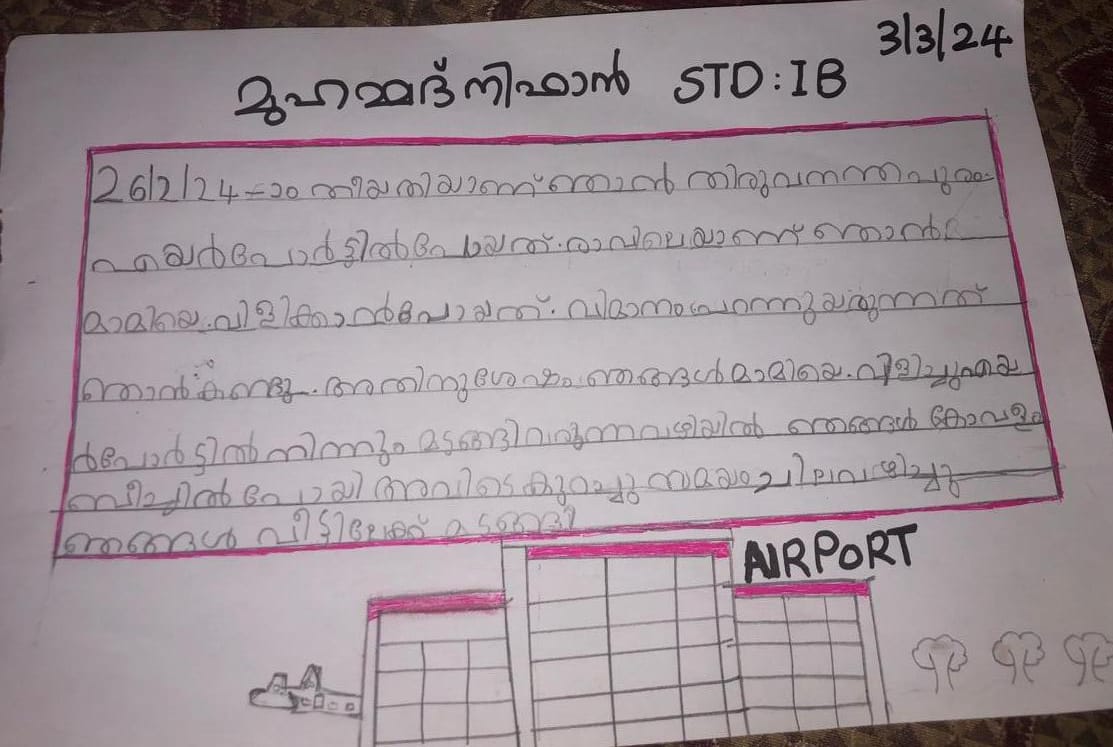 3/3/24
മുഹമ്മദ് നിഫാൻ STD : I B
26/2/24-ാം തിയതിയാണ് ഞാൻ തിരുവനന്തപുരം
എയർപോർട്ടിൽ പോയത്. രാവിലെയാണ് ഞാൻ
മാമയെ വിളിക്കാൻ പോയത്. വിമാനം പറന്നുയരുന്നത്
ഞാൻ കണ്ടു. അതിനുശേഷം ഞങ്ങൾ മാമയെ വിളിച്ചു എയ
ർപോർട്ടിൽ നിന്നും മടങ്ങി വരുന്ന വഴിയിൽ ഞങ്ങൾ കോവളം
ബീച്ചിൽ പോയി അവിടെ കുറച്ചു സമയം ചിലവഴിച്ചു
ഞങ്ങൾ വീട്ടിലേക്ക് മടങ്ങി
AIRPORT